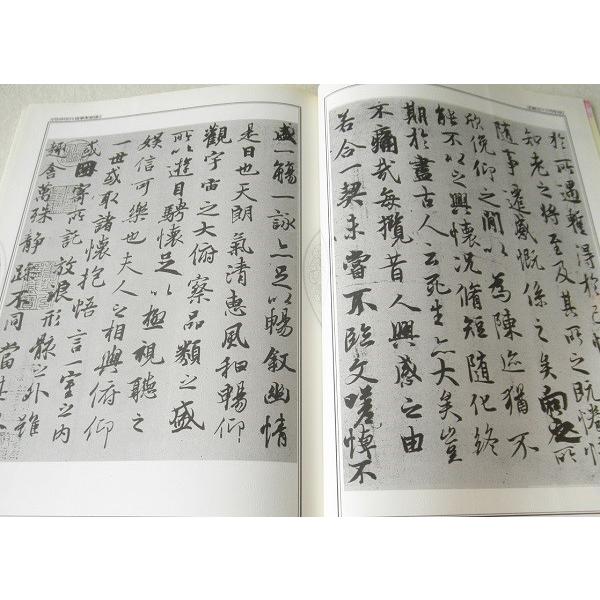 盛一觴一詠亦足以暢敘幽情
是日也天朗氣清惠風和暢仰
觀宇宙之大俯察品類之盛
所以遊目騁懷足以極視聽之
娛信可樂也夫人之相與俯仰
一世或取諸懷抱悟言一室之內
或因寄所託放浪形骸之外雖
趣舍萬殊靜躁不同當其
於所遇暫得於己
知老之將至及其所之既惓
隨事遷感慨係之矣向之所
欣俛仰之間以為陳迹猶不
能不以之興懷況脩短隨化終
期於盡古人云死生亦大矣豈
不痛哉每攬昔人興感之由
若合一契未嘗不臨文嗟悼不